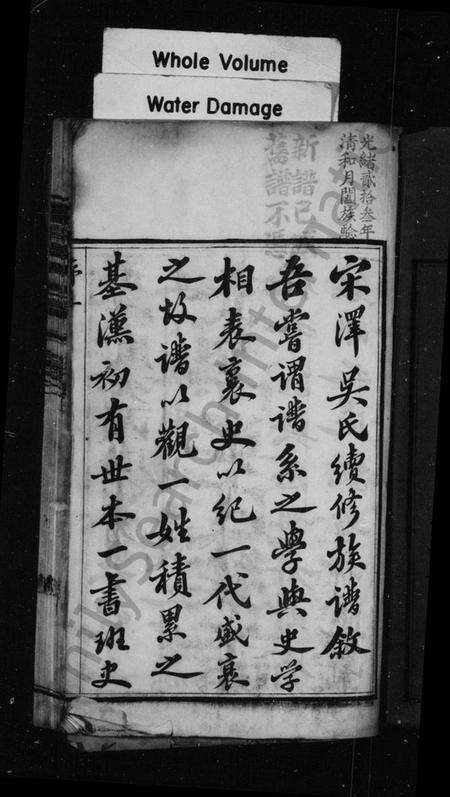 Whole Volume
Water Damage
光緒貳拾叁年
清和月闔族驗
新譜已
舊譜不
宋澤吳氏續修族譜敘
吾嘗謂譜系之學與史学
相表裏史以紀一代盛衰
之故譜以觀一姓積累之
基漢初有世本一書班史
序一